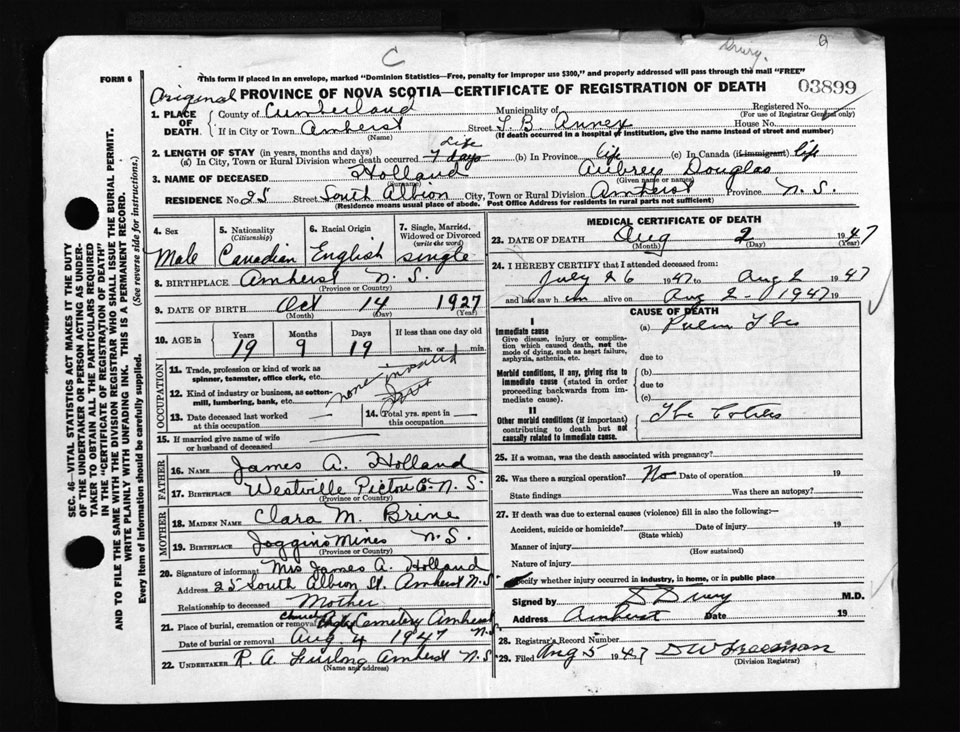 C
Drury. Q
FORM 6
This form if placed in an envelope, marked "Dominion Statistics—Free, penalty for improper use $300," and properly addressed will pass through the mail "FREE"
Original PROVINCE OF NOVA SCOTIA—CERTIFICATE OF REGISTRATION OF DEATH 03899
1. PLACE OF DEATH. County of Cumberland Municipality of Registered No.
(For use of Registrar General only)
If in City or Town Amherst Street T. B. Annex House No.
(Name) (If death occurred in a hospital or institution, give the name instead of street and number)
2. LENGTH OF STAY (in years, months and days) Life
(a) In City, Town or Rural Division where death occurred 7 days (b) In Province life (c) In Canada (if immigrant) life
3. NAME OF DECEASED Holland Aubrey Douglas
(Surname) (Given name or names)
RESIDENCE No. 25 Street South Albion City, Town or Rural Division Amherst Province N. S.
(Residence means usual place of abode. Post Office Address for residents in rural parts not sufficient)
4. Sex 5. Nationality (Citizenship) 6. Racial Origin 7. Single, Married, Widowed or Divorced (write the word)
Male Canadian English single
8. BIRTHPLACE Amherst N. S.
(Province or Country)
9. DATE OF BIRTH Oct 14 1927
(Month) (Day) (Year)
10. AGE in Years Months Days If less than one day old
19 9 19 hrs. or min.
OCCUPATION
11. Trade, profession or kind of work as spinner, teamster, office clerk, etc.
12. Kind of industry or business, as cotton-mill, lumbering, bank, etc.
none
13. Date deceased last worked at this occupation
14. Total yrs. spent in this occupation
15. If married give name of wife or husband of deceased
FATHER
16. NAME James A. Holland
17. BIRTHPLACE Westville Pictou Co. N. S.
(Province or Country)
MOTHER
18. MAIDEN NAME Clara M. Brine
19. BIRTHPLACE Joggins Mines N. S.
(Province or Country)
20. Signature of informant Mrs James A. Holland
Address 25 South Albion St. Amherst N.S
Relationship to deceased Mother
21. Place of burial, cremation or removal Cemetery Amherst N.S
Date of burial or removal Aug. 4 1947
22. UNDERTAKER P. A. Furlong Amherst N. S.
(Name and address)
MEDICAL CERTIFICATE OF DEATH
23. DATE OF DEATH Aug 2 1947
(Month) (Day) (Year)
24. I HEREBY CERTIFY that I attended deceased from:
July 26 1947 to Aug 2 1947
and last saw him alive on Aug 2- 1947 19
CAUSE OF DEATH
I
Immediate cause
Give disease, injury or complication which caused death, not the mode of dying, such as heart failure, asphyxia, asthenia, etc.
(a) Pulm Tbc
due to
Morbid conditions, if any, giving rise to immediate cause (stated in order proceeding backwards from immediate cause).
(b)
due to
(c)
II
Other morbid conditions (if important) contributing to death but not causally related to immediate cause.
Tbc
25. If a woman, was the death associated with pregnancy?
26. Was there a surgical operation? No Date of operation 19
State findings Was there an autopsy?
27. If death was due to external causes (violence) fill in also the following:—
Accident, suicide or homicide? Date of injury 19
(State which)
Manner of injury
(How sustained)
Nature of injury
Specify whether injury occurred in industry, in home, or in public place
Signed by D Drury M.D.
Address Amherst Date 19
28. Registrar's Record Number
29. Filed Aug 5 1947 D W Freeman
(Division Registrar)
SEC. 46—VITAL STATISTICS ACT MAKES IT THE DUTY
OF THE UNDERTAKER OR PERSON ACTING AS UNDER-
TAKER TO OBTAIN ALL THE PARTICULARS REQUIRED
IN THE "CERTIFICATE OF REGISTRATION OF DEATH"
AND TO FILE THE SAME WITH THE DIVISION REGISTRAR WHO SHALL ISSUE THE BURIAL PERMIT.
WRITE PLAINLY WITH UNFADING INK. THIS IS A PERMANENT RECORD.
Every item of information should be carefully supplied. (See reverse side for instructions.)